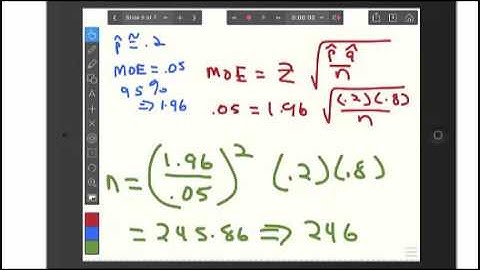 Slide 6 of 7
0:00:00
p̂ ≅ .2
MOE = .05
95%
⇒ 1.96
MOE = Z √(p̂ q̂ / n)
.05 = 1.96 √((.2)(.8) / n)
n = (1.96 / .05)² (.2)(.8)
= 245.86 ⇒ 246